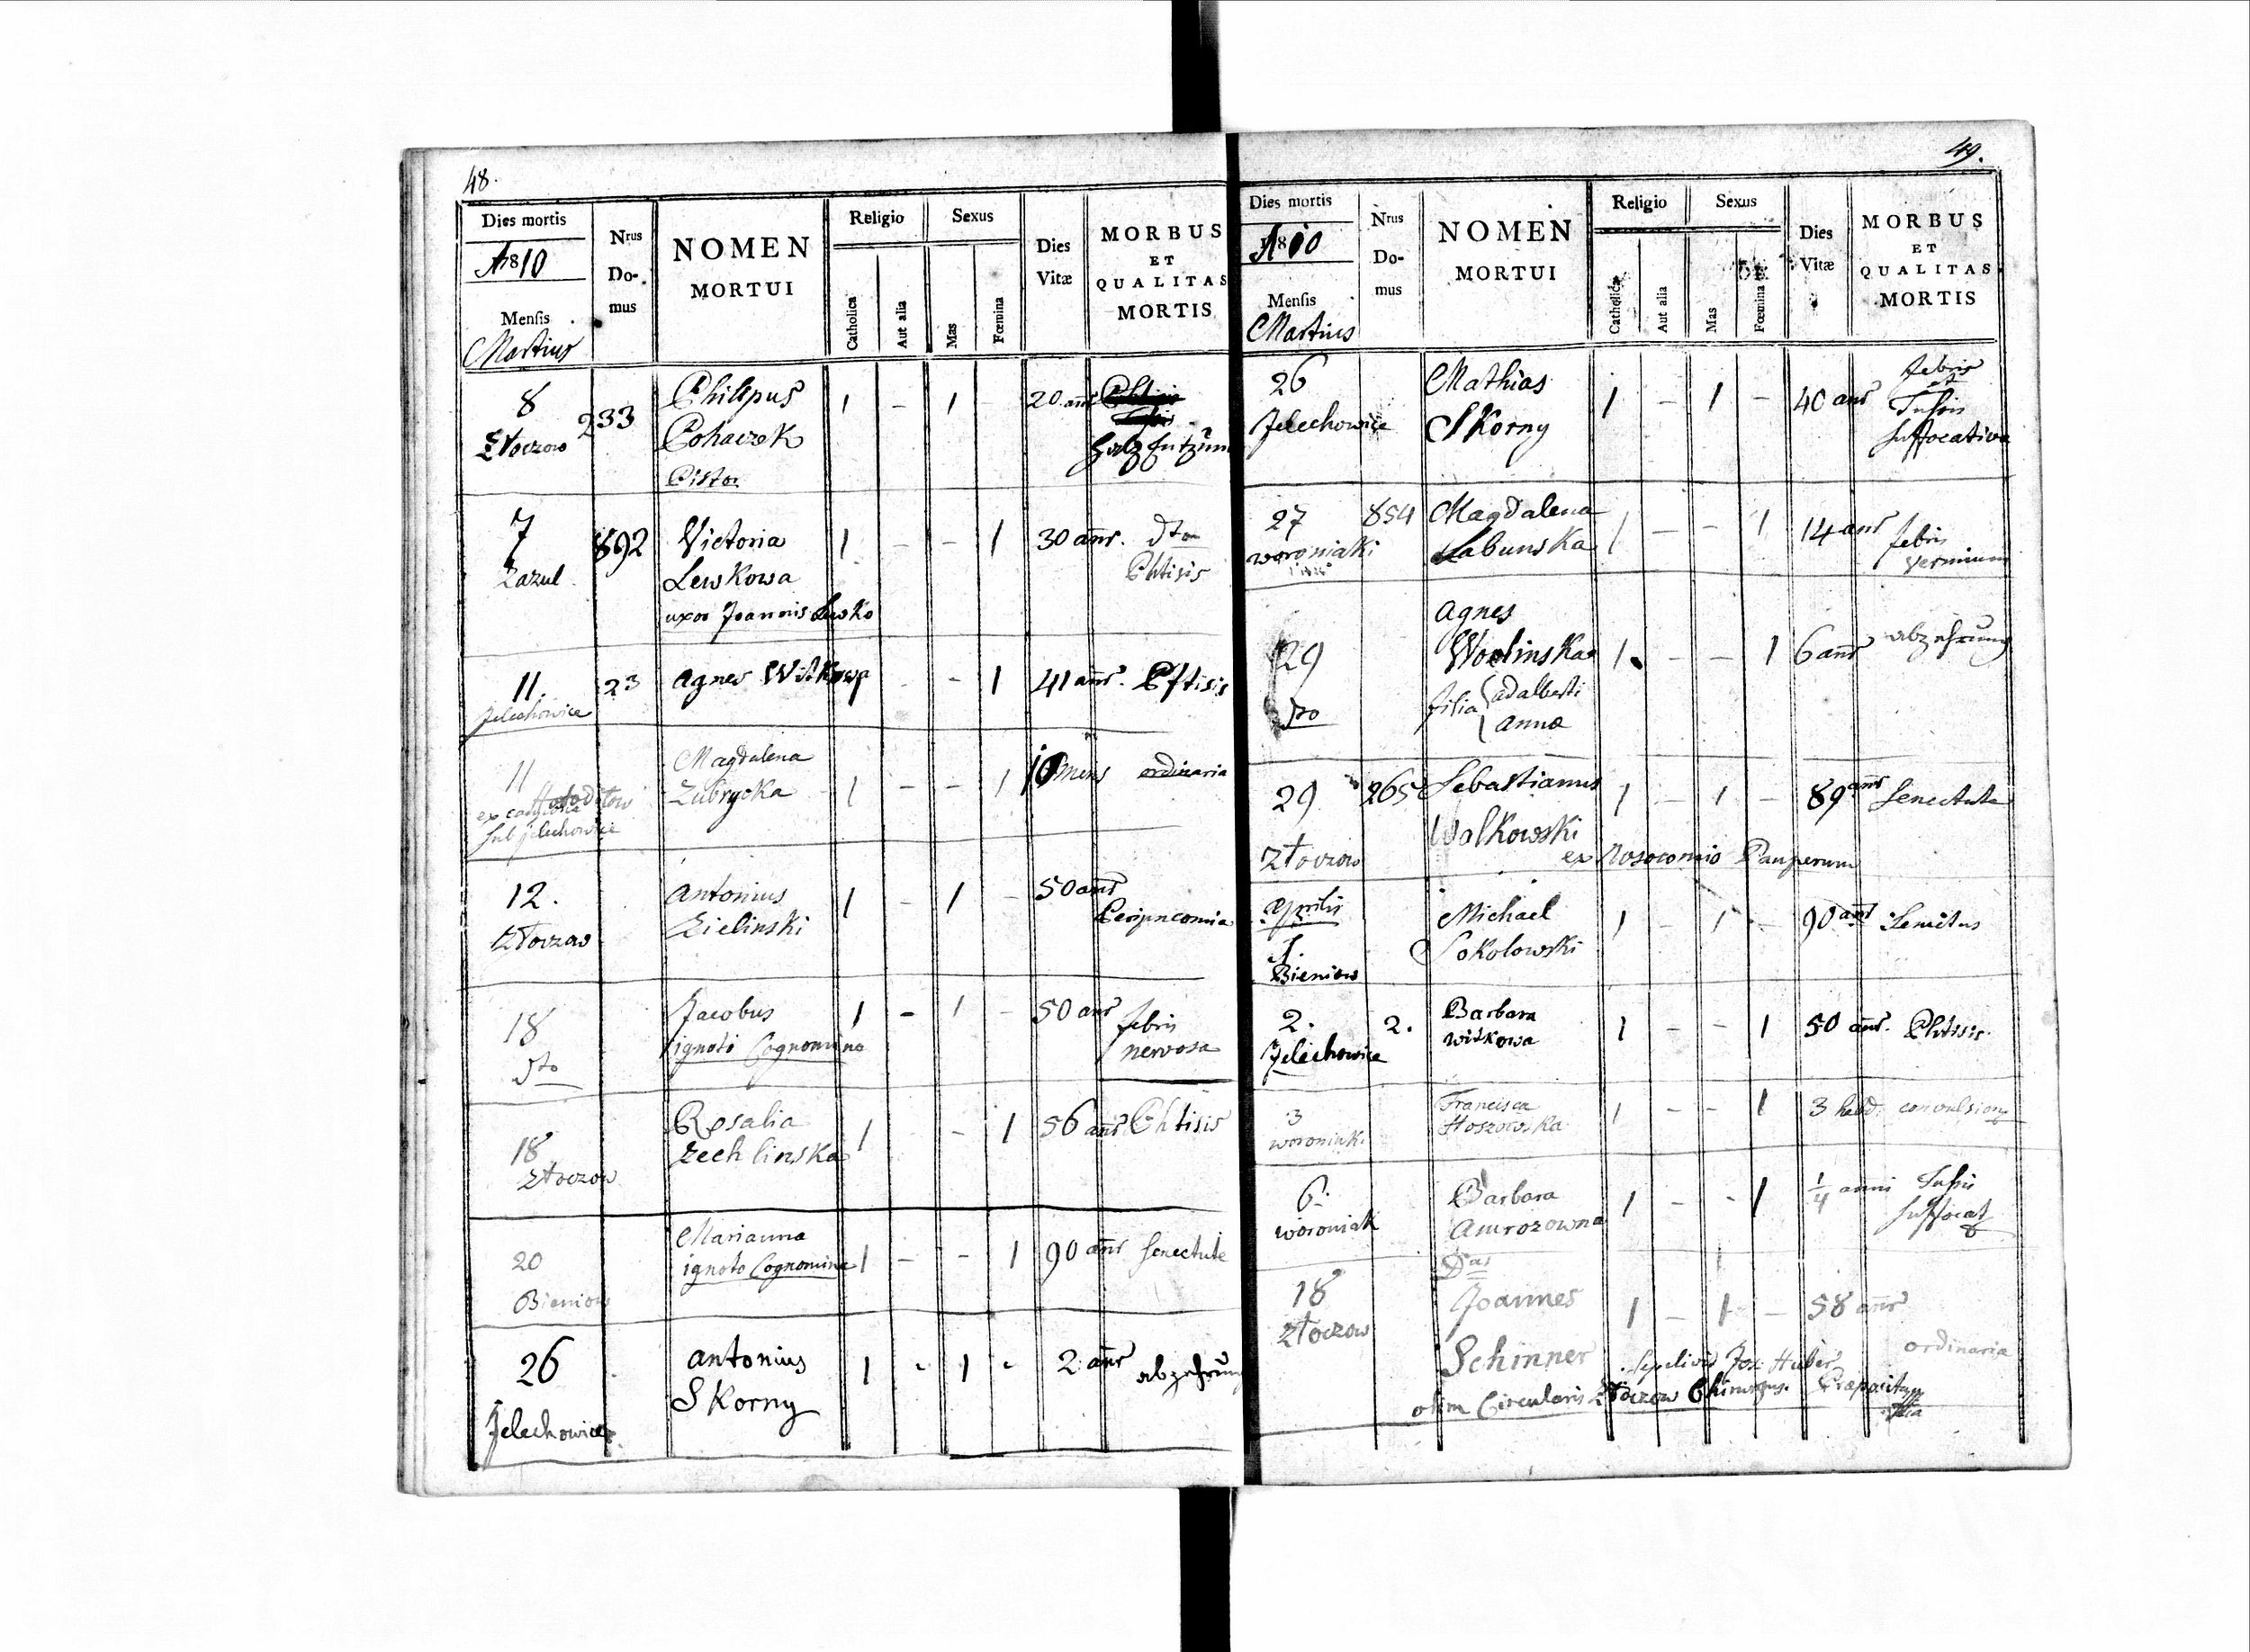 48.
Dies mortis
A 1810
Mensis
Martius
Nrus
Do-
mus
NOMEN
MORTUI
Religio
Catholica
Aut alia
Sexus
Mas
Fœmina
Dies
Vitæ
MORBUS
ET
QUALITAS
MORTIS
8 233 Philippus 1 - 1 - 20 anr
Złoczow Pohaczek
Pistor
7 892 Victoria 1 - - 1 30 anr. dto
Zazul Lewkowa Phtisis
uxor Joannis Lewko
11. 23 Agnes Witkowa - - 1 41 anr. Pftisis
Jelechowice
11 Magdalena
Zubrycka 1 - - 1 10 mens ordinaria
sub jelechowice
12. Antonius 1 - 1 - 50 anr
Złoczow Zielinski Peripneomia
18 Jacobus 1 - 1 - 50 anr febris
dto ignoti Cognomina nervosa
18 Rosalia 1 - - 1 56 anr Phtisis
Złoczow Zechlinska
20 Marianna
Bieniow ignoto Cognomine 1 - - 1 90 anr senectute
26 Antonius 1 - 1 - 2 anr abzehrung
Jelechowice Skorny
49.
Dies mortis
A 1810
Mensis
Martius
Nrus
Do-
mus
NOMEN
MORTUI
Religio
Catholica
Aut alia
Sexus
Mas
Fœmina
Dies
Vitæ
MORBUS
ET
QUALITAS
MORTIS
26 Mathias 1 - 1 - 40 anr febris
et
Jelechowice Skorny Tussis
suffocativa
27 854 Magdalena 1 - - 1 14 anr febris
woroniaki Labunska verminum
Agnes
29 Wolinska 1. - - 1 6 anr abzehrung
dto filia Adalberti
Anna
29 265 Sebastianus 1 - 1 - 89 anr senectute
Złoczow Walkowski
ex Nosocomio Pauperum
Aprilis
1. Michael 1 - 1 - 90 anr
Bieniow Sokolowski
2. 2. Barbara 1 - - 1 50 anr. Phtisis.
Jelechowice witkowa
3 Francisca 1 - - 1 3 hebd. convulsiones
woroniaki Hoszowska
6. Barbara 1 - - 1 1/4 anni Tussis
woroniak Amrozowna suffocat
18 Joannes 1 - 1 - 58 anr
Złoczow Schinner ordinaria
sepelivit Jos: Huber
olim Circularis Złoczow Chirurgus. Præpositus